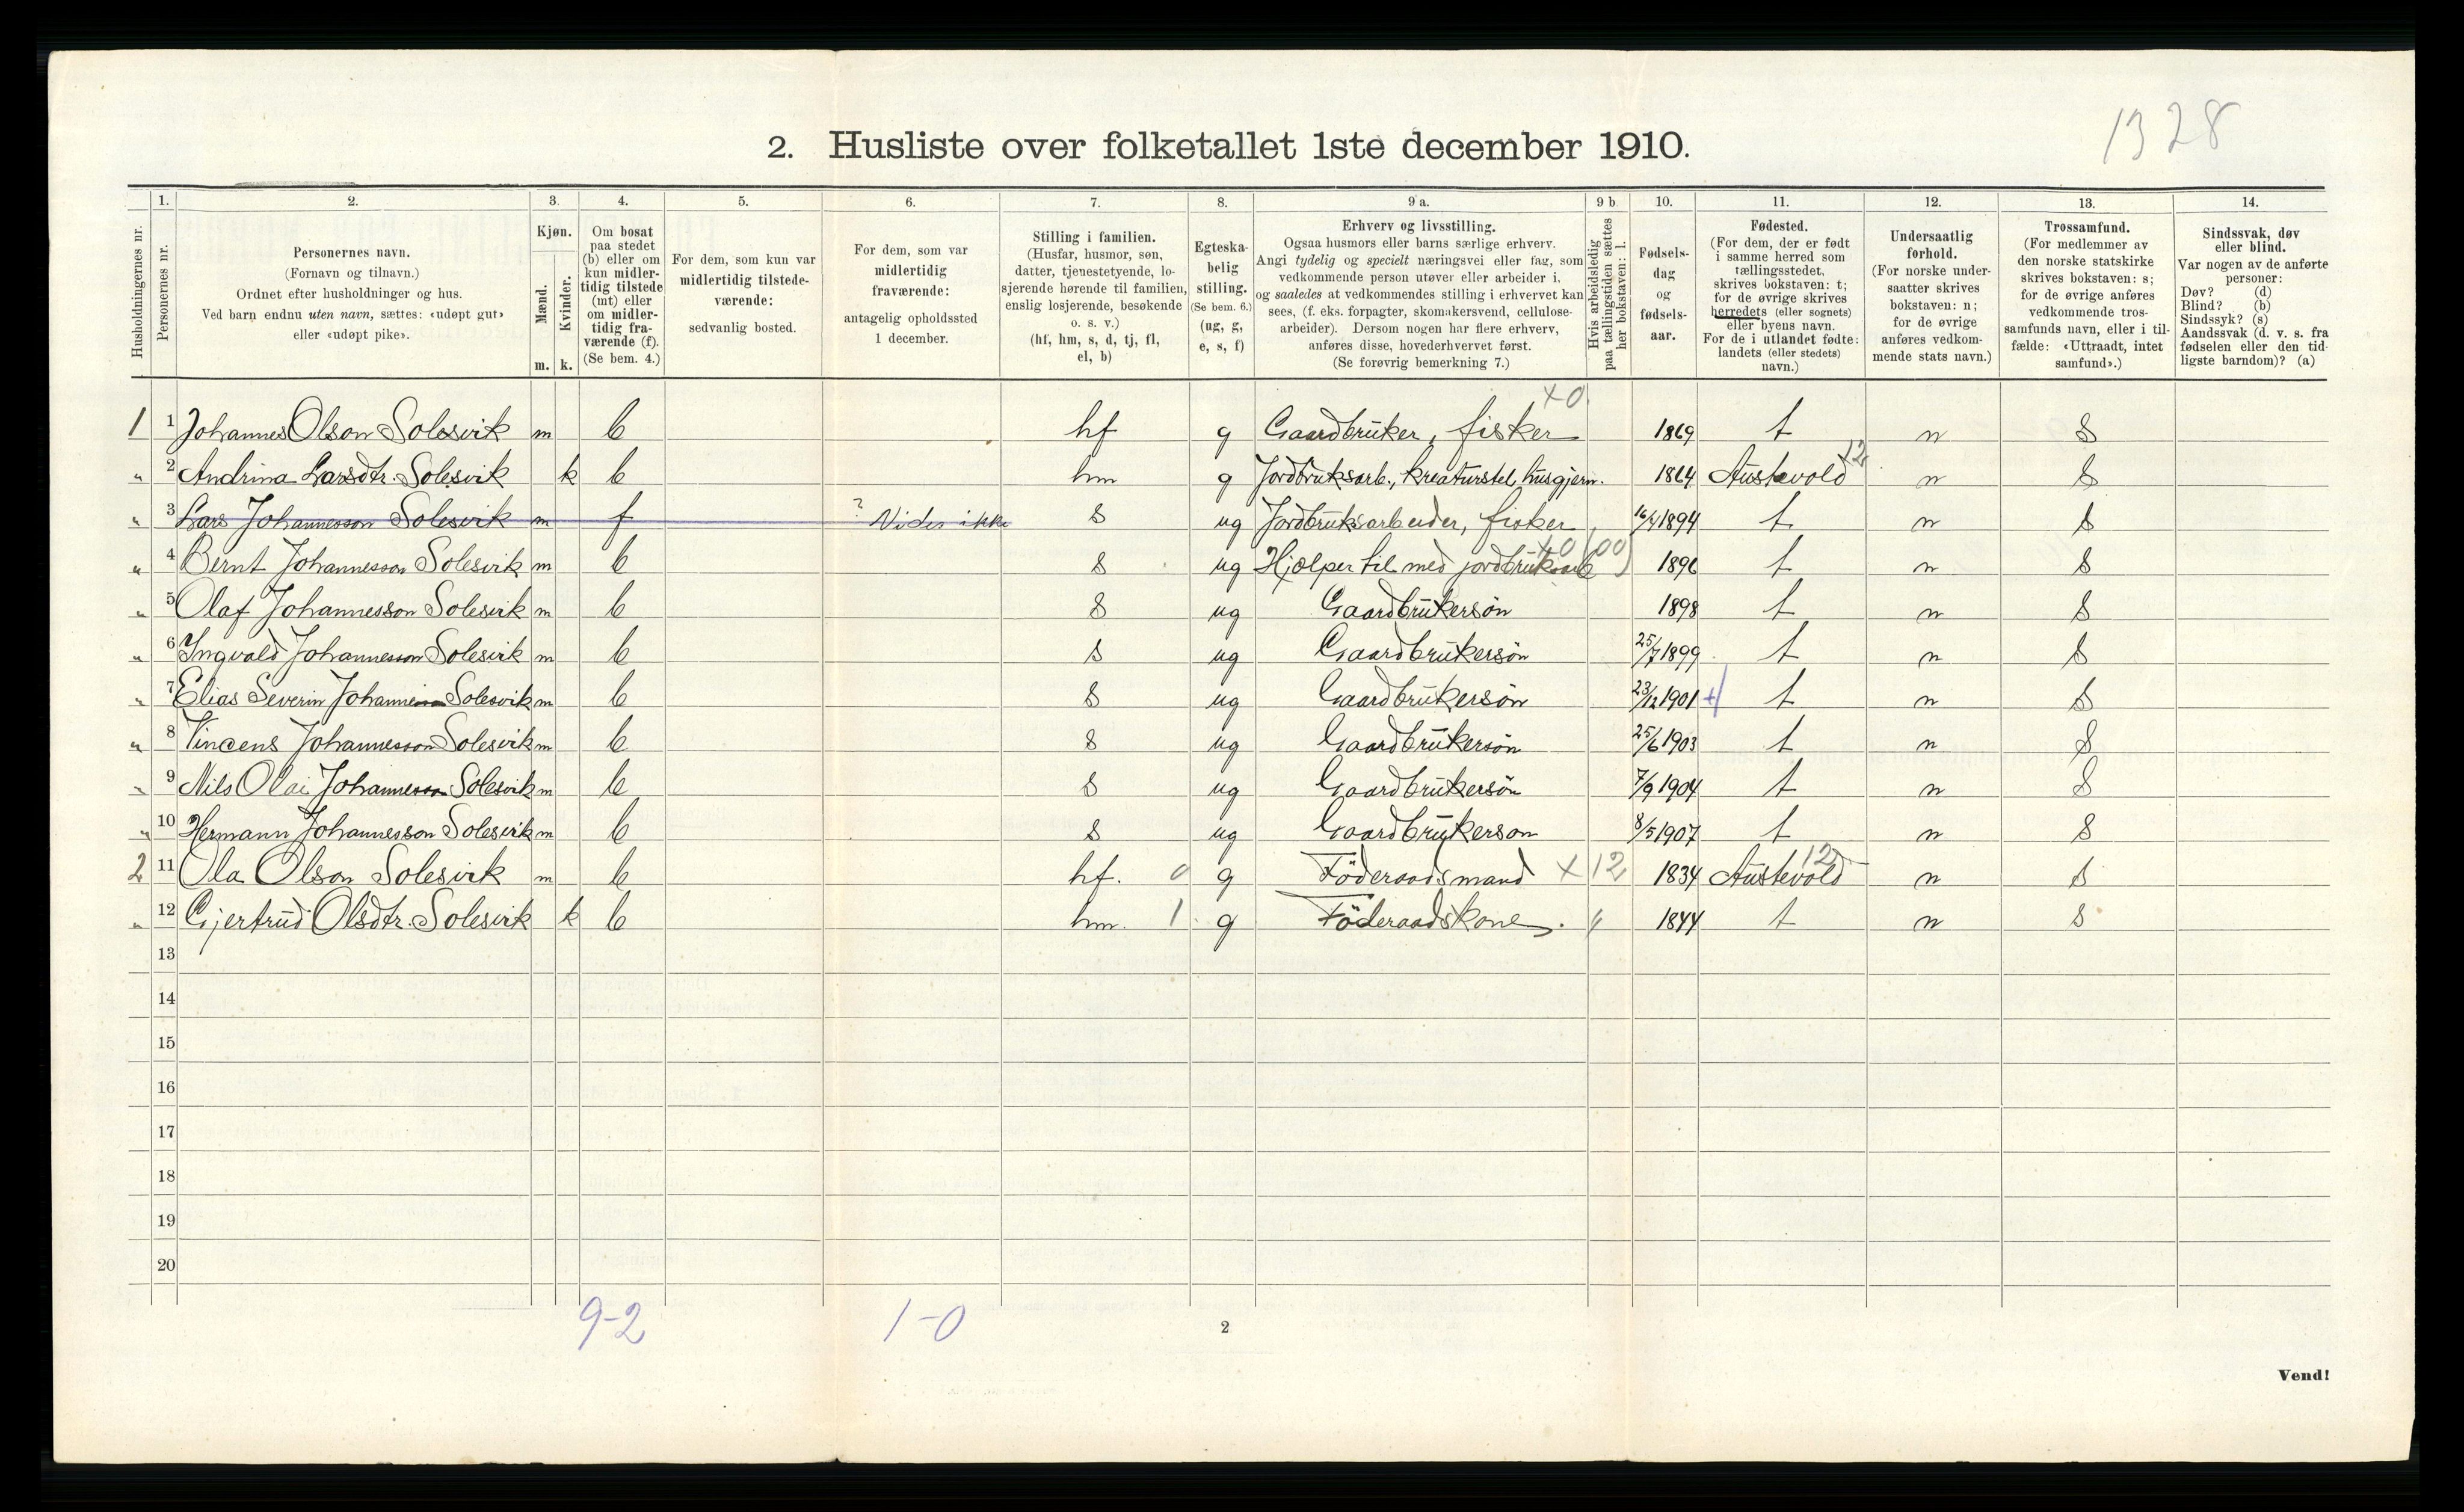 1328
2. Husliste over folketallet 1ste december 1910.
1. 2. 3. 4. 5. 6. 7. 8. 9 a. 9 b. 10. 11. 12. 13. 14.
Husholdningernes nr.
Personernes nr.
Personernes navn.
(Fornavn og tilnavn.)
Ordnet efter husholdninger og hus.
Ved barn endnu uten navn, sættes: «udøpt gut»
eller «udøpt pike».
Kjøn.
Mænd.
Kvinder.
m. k.
Om bosat
paa stedet
(b) eller om
kun midler-
tidig tilstede
(mt) eller
om midler-
tidig fra-
værende (f).
(Se bem. 4.)
For dem, som kun var
midlertidig tilstede-
værende:
sedvanlig bosted.
For dem, som var
midlertidig
fraværende:
antagelig opholdssted
1 december.
Stilling i familien.
(Husfar, husmor, søn,
datter, tjenestetyende, lo-
sjerende hørende til familien,
enslig losjerende, besøkende
o. s. v.)
(hf, hm, s, d, tj, fl,
el, b)
Egteska-
belig
stilling.
(Se bem. 6.)
(ug, g,
e, s, f)
Erhverv og livsstilling.
Ogsaa husmors eller barns særlige erhverv.
Angi tydelig og specielt næringsvei eller fag, som
vedkommende person utøver eller arbeider i,
og saaledes at vedkommendes stilling i erhvervet kan
sees, (f. eks. forpagter, skomakersvend, cellulose-
arbeider). Dersom nogen har flere erhverv,
anføres disse, hovederhvervet først.
(Se forøvrig bemerkning 7.)
Hvis arbeidsledig
paa tællingstiden sættes
her bokstaven: l.
Fødsels-
dag
og
fødsels-
aar.
Fødested.
(For dem, der er født
i samme herred som
tællingsstedet,
skrives bokstaven: t;
for de øvrige skrives
herredets (eller sognets)
eller byens navn.
For de i utlandet fødte:
landets (eller stedets)
navn.)
Undersaatlig
forhold.
(For norske under-
saatter skrives
bokstaven: n;
for de øvrige
anføres vedkom-
mende stats navn.)
Trossamfund.
(For medlemmer av
den norske statskirke
skrives bokstaven: s;
for de øvrige anføres
vedkommende tros-
samfunds navn, eller i til-
fælde: «Uttraadt, intet
samfund».)
Sindssvak, døv
eller blind.
Var nogen av de anførte
personer:
Døv? (d)
Blind? (b)
Sindssyk? (s)
Aandssvak (d. v. s. fra
fødselen eller den tid-
ligste barndom)? (a)
1 1 Johannes Olson Solesvik m b hf g Gaardbruker, fisker x0 1869 t n s
" 2 Andrina Larsdtr. Solesvik k b hm g Jordbruksarb., kreaturstel, husgjern. 1864 Austevold 12 n s
" 3 Lars Johannesson Solesvik m f ? Vides ikke s ug Jordbruksarbeider, fisker 16/4 1894 t n s
" 4 Bernt Johannesson Solesvik m b s ug Hjælper til med jordbruksarb x0 (00) 1896 t n s
" 5 Olaf Johannesson Solesvik m b s ug Gaardbrukersøn 1898 t n s
" 6 Ingvald Johannesson Solesvik m b s ug Gaardbrukersøn 25/7 1899 t n s
" 7 Elias Severin Johannesson Solesvik m b s ug Gaardbrukersøn 23/12 1901 t n s
" 8 Vincens Johannesson Solesvik m b s ug Gaardbrukersøn 25/6 1903 t n s
" 9 Nils Olai Johannesson Solesvik m b s ug Gaardbrukersøn 7/9 1904 t n s
" 10 Hermann Johannesson Solesvik m b s ug Gaardbrukerson 8/5 1907 t n s
2 11 Ola Olson Solesvik m b hf. 0 g Föderaadsmand x 12 1834 Austevold 12 n s
" 12 Gjertrud Olsdtr. Solesvik k b hm. 1 g Föderaadskone. " 1844 t n s
13
14
15
16
17
18
19
20
9-2 1-0
2
Vend!